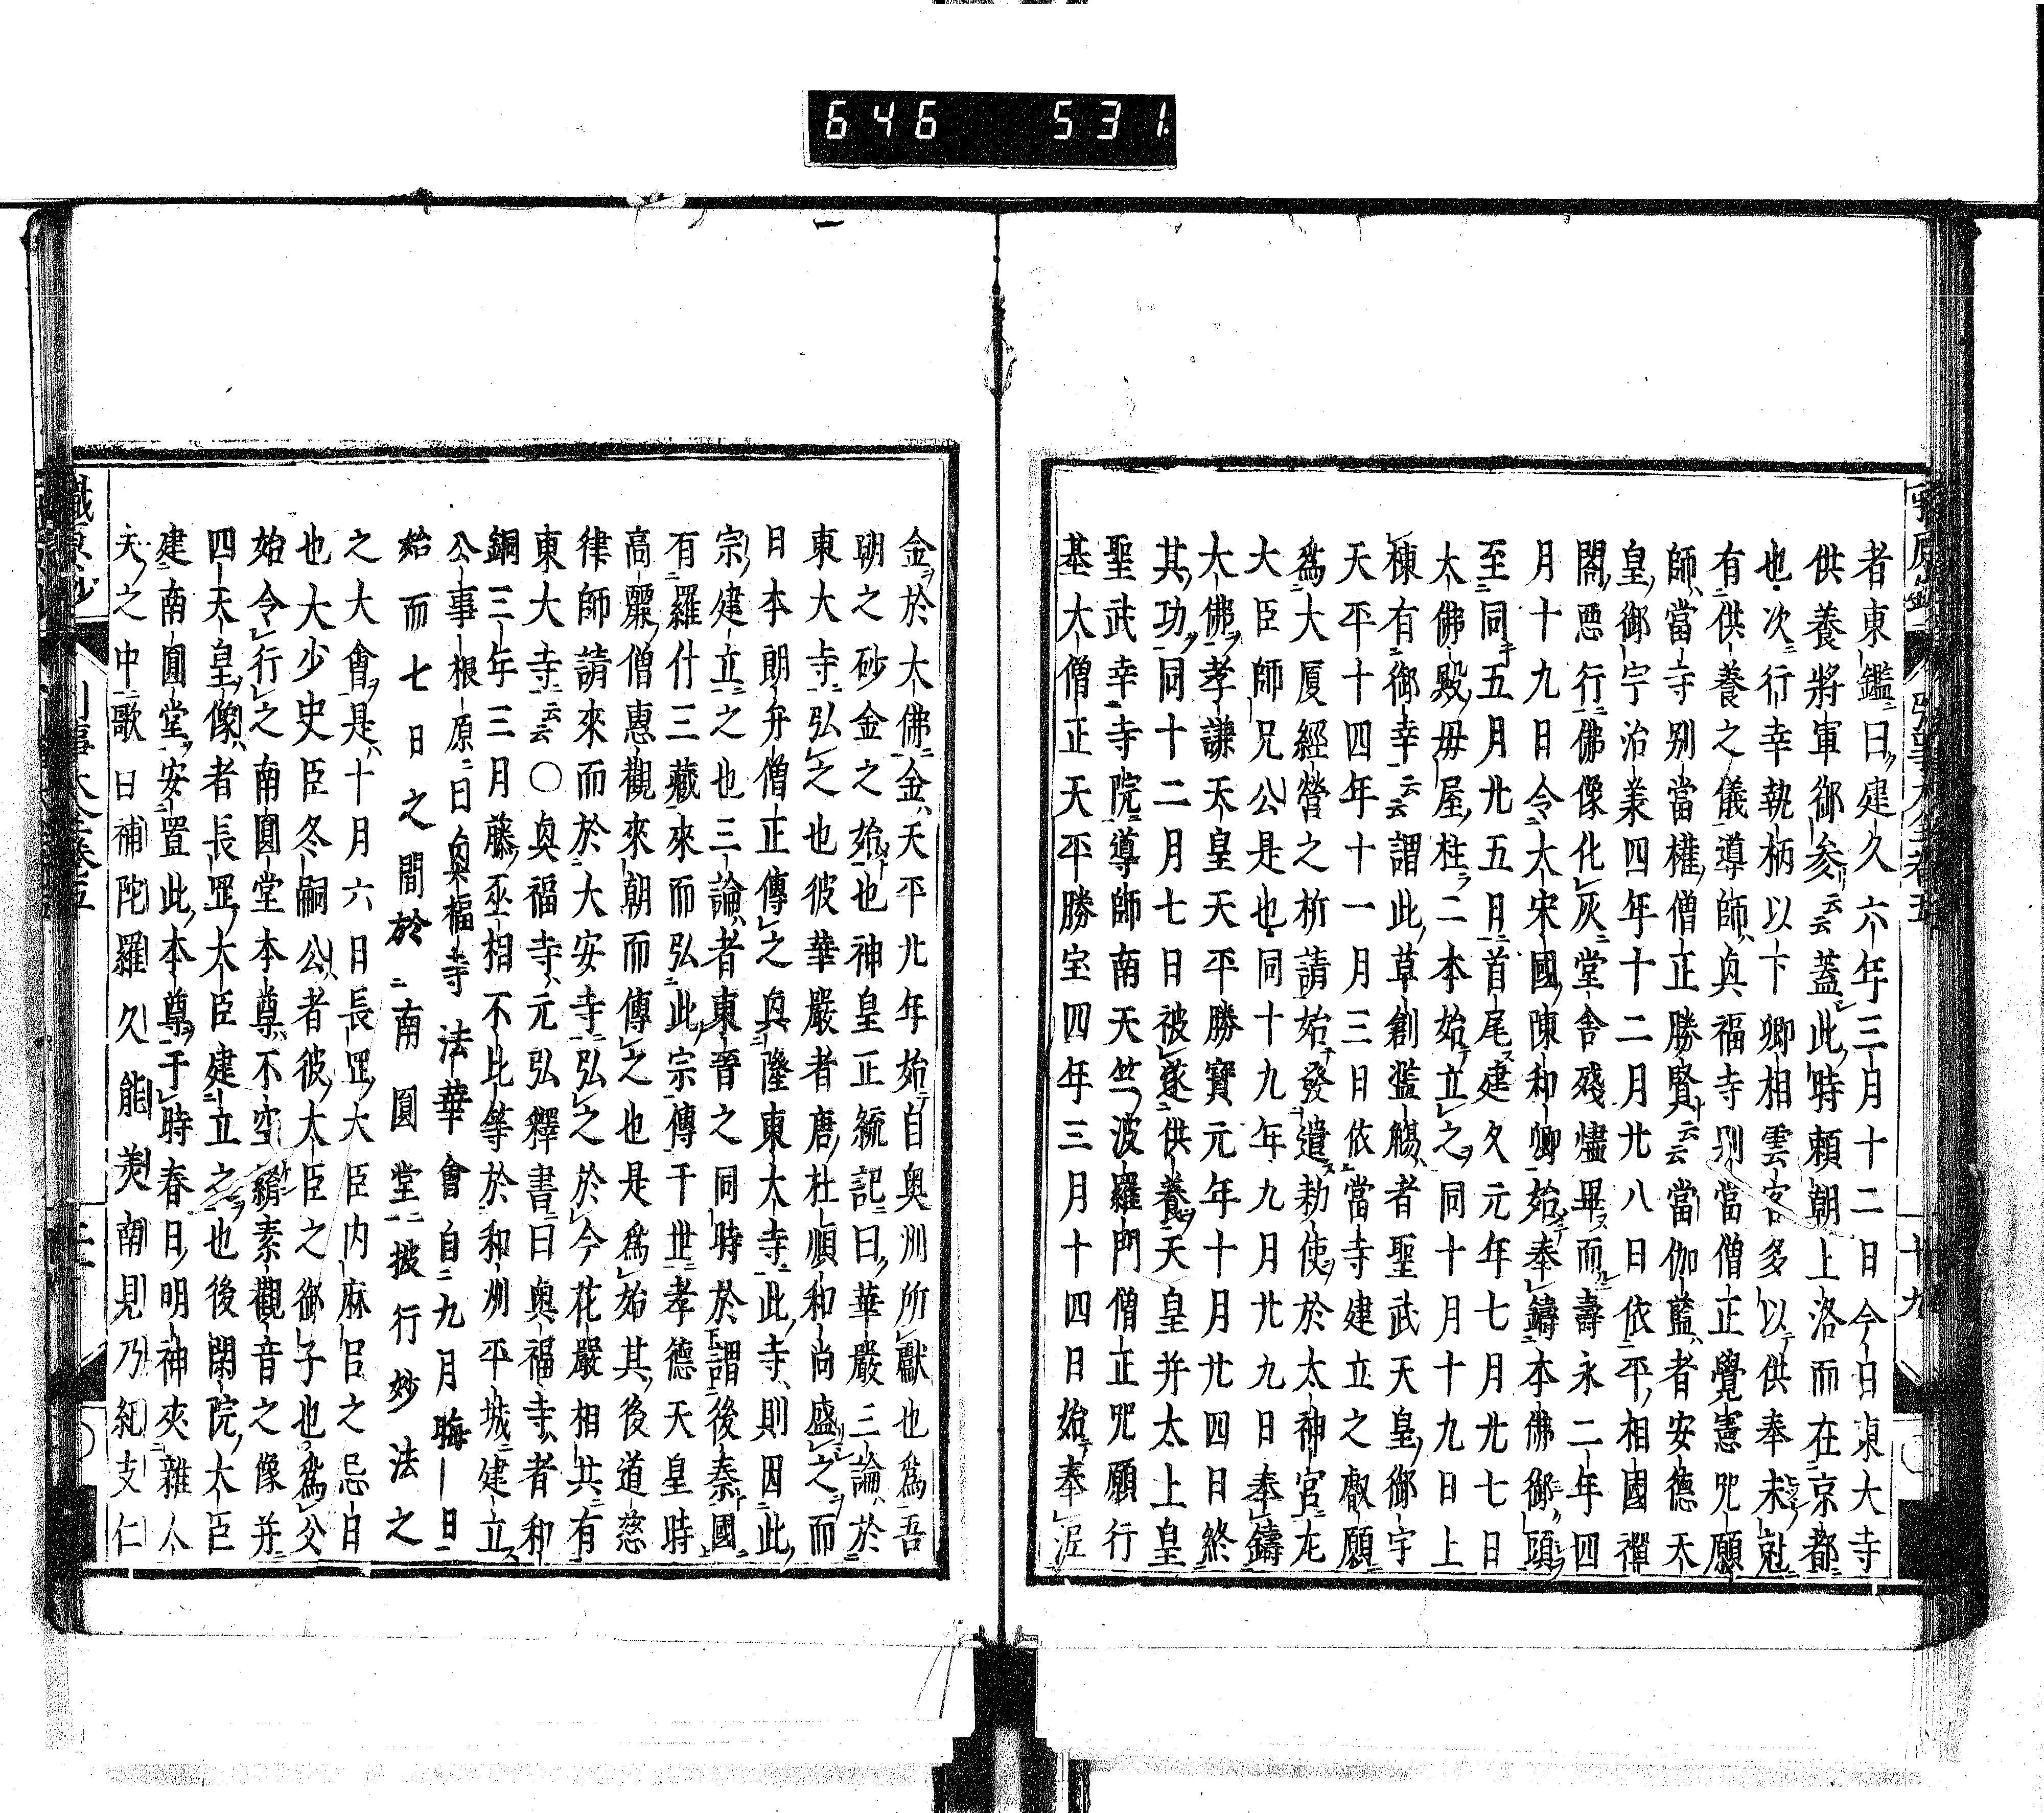 646 531
者東鑑曰建久六年三月十二日今日東大寺
供養將軍御参云云蓋此時頼朝上洛而在京都
也次行幸執柄以下卿相雲客多以供奉未尅
有供養之儀導師興福寺別當僧正覺憲咒願
師當寺別當權僧正勝賢云云當伽藍者安德天
皇御宇治業四年十二月廿八日依平相國禪
閤惡行佛像化灰堂舎殘燼畢而壽永二年四
月十九日令大宋國陳和卿始奉鑄本佛御頭
至同五月廿五日首尾建久元年七月廿七日
大佛殿母屋柱二本始立之同十月十九日上
棟有御幸云云謂此草創濫觴者聖武天皇御宇
天平十四年十一月三日依當寺建立之叡願
爲大厦經營之祈請始發遣勅使於太神宮左
大臣師兄公是也同十九年九月廿九日奉鑄
大佛孝謙天皇天平勝寶元年十月廿四日終
其功同十二月七日被遂供養天皇并太上皇
聖武幸寺院導師南天竺波羅門僧正咒願行
基大僧正天平勝宝四年三月十四日始奉泥
金於大佛金天平九年始自奥州所獻也爲吾
朝之砂金之始也神皇正統記曰華嚴三論於
東大寺弘之也彼華嚴者唐杜順和尚盛之而
日本朗弁僧正傳之興隆東大寺此寺則因此
宗建立之也三論者東晉之同時於謂後秦國
有羅什三藏來而弘此宗傳于世孝德天皇時
高麗僧惠觀來朝而傳之也是爲始其後道慈
律師請來而於大安寺弘之於今花嚴相共有
東大寺云云〇興福寺元弘釋書曰興福寺者和
銅三年三月藤丞相不比等於和州平城建立
公事根原曰興福寺法華會自九月晦日
始而七日之間於南圓堂披行妙法之
之大會是十月六日長罡大臣内麻呂之忌日
也大少史臣冬嗣公者彼大臣之御子也爲父
始令行之南圓堂本尊不空羂素觀音之像并
四天皇像者長罡大臣建立之也後閑院大臣
建南圓堂安置此本尊于時春日明神夾雜人
夫之中歌曰補陀羅久能美南見乃紀支仁